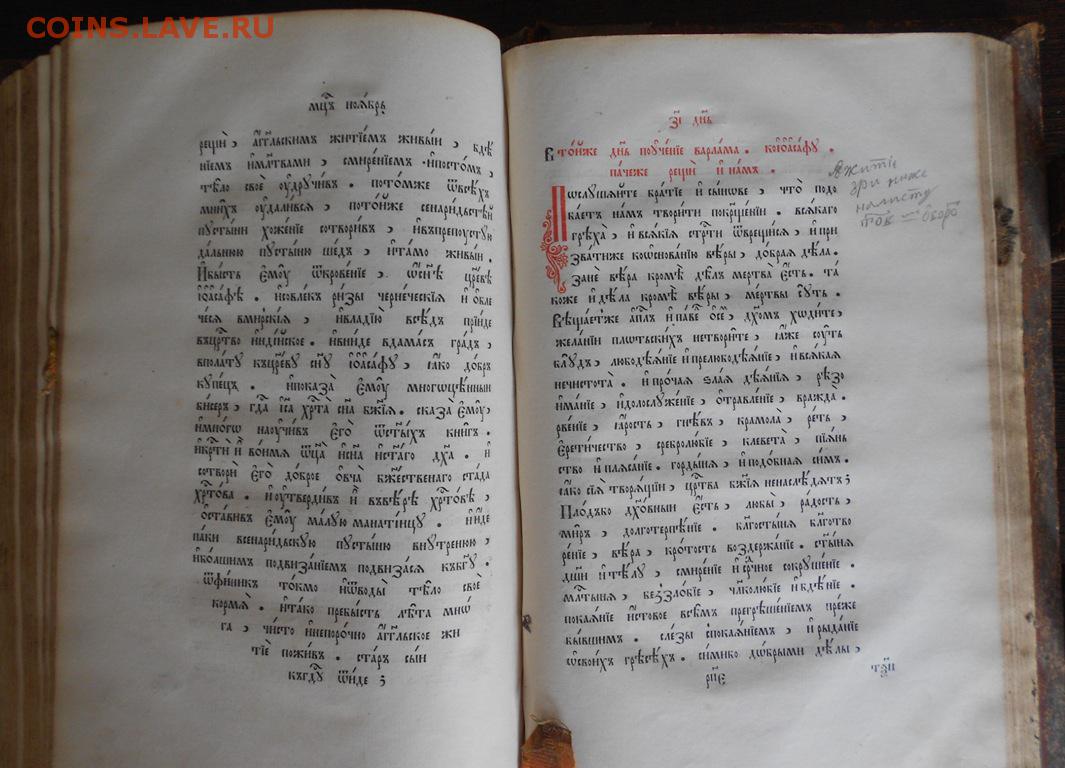 COINS.LAVE.RU
мцⷭ҇ъ ноѧ́брь
рещѝ , а҆́гг҃льскимъ житїе́мъ живы́и , бдѣ́
нїемъ и҆мл҃твами , смире́нїемъ и҆посто́мъ ,
тѣ́ло своѐ ᲂу҆дрꙋчи́въ . пото́мже ѿвсѣ́хъ
мни́хъ ᲂу҆дали́всѧ , пото́йже сенари́дьстѣй
пꙋсты́ни хоже́нїе сотвори́въ , и҆въпрепросту́ю
да́льнюю пꙋсты́ню ше́дъ , и҆та́мо живы́и .
И҆бы́сть є҆мᲂу̀ ѿкрове́нїе , ѡ҆сн҃ѣ цр҃евѣ
і҆ѡа҆са́фѣ . и҆совле́къ ри́зы черне́ческїѧ и҆ѡбле
че́сѧ вмирскі́ѧ , и҆влади́ю всѣ́дъ прїи́де
въца́рство и҆нді́йское . и҆вни́де вдама́съ гра́дъ ,
впола́тꙋ къцр҃евꙋ сн҃ꙋ і҆ѡа҆са́фꙋ , ꙗ҆́ко до́бръ
кꙋпе́цъ . и҆показа̀ є҆мᲂу̀ многоцѣ́нныи
би́серъ , гдⷭ҇а і҆и҃са хрⷭ҇та̀ сн҃а бж҃їѧ . сказа̀ є҆мᲂу̀ ,
и҆мно́гѡ наᲂу҆чи́въ є҆го̀ ѿст҃ы́хъ кни́гъ .
и҆крⷭ҇тѝ и҆̀ во́имѧ ѻ҆ц҃а̀ и҆сн҃а и҆ст҃а́гѡ дх҃а . и҆
сотворѝ є҆го̀ до́брое ѻ҆вча̀ бжⷭ҇твенаго ста́да
хрⷭ҇то́ва . и҆ᲂу҆тверди́въ и҆̀ въвѣ́рѣ хрⷭ҇то́вѣ ,
ѡ҆ста́вивъ є҆мᲂу̀ ма́лꙋю манатї́ицꙋ . и҆и́де
па́ки всенари́дьскꙋю пꙋсты́ню внꙋ́треннюю ,
и҆бо́лшимъ подвиза́нїемъ подвиза́сѧ къбг҃ꙋ .
ѿфи́никъ то́кмо и҆ѿводы̀ тѣ́ло своѐ
кормѧ̀ . и҆та́ко пребы́сть лѣ́та мнѡ́
га , чи́сто и҆непоро́чно а҆́гг҃льское жи
тїѐ пожи́въ . ста́ръ сы́и
къгдⷭ҇ꙋ ѿи́де ;
з҃і дн҃ь
Вто́йже дн҃ь поᲂуче́нїе варла́ма . коі҆ѡа҆са́фꙋ .
па́чеже рещѝ и҆на́мъ .
Послꙋ́шайте бра́тїе и҆сы́нове , что̀ подо
ба́етъ на́мъ твори́ти покр҃ще́нїи . всѧ́каго
грѣха̀ , и҆всѧ́кїѧ стрⷭ҇ти ѿврещи́сѧ , и҆при
зва́тиже коѡ҆снова́нїю вѣ́ры , до́браѧ дѣ́ла .
занѐ вѣ́ра кромѣ̀ дѣ́лъ мертва̀ є҆́сть . та́
коже и҆дѣ́ла кромѣ̀ вѣ́ры , ме́ртвы сꙋ́ть .
Вѣща́етже а҆пⷭ҇лъ и҆па́вⷧ҇е ѻ҆се́ , дх҃омъ ходи́те ,
жела́нїи пло́тьскихъ нетвори́те , ꙗ҆́же сᲂу́ть
блꙋ́дъ , любодѣѧ́нїе и҆прелюбодѣѧ́нїе , и҆всѧ́каѧ
нечистота̀ . и҆про́чаѧ ѕла́ѧ дѣѧ́нїѧ , рѣзо
има́нїе , и҆долослꙋже́нїе , ѻ҆травле́нїе , вражда̀ .
рве́нїе , ꙗ҆́рость , гнѣ́въ , крамола̀ , ре́ть ,
є҆рети́чество , сребролю́бїе , клевета̀ , пїѧ́нь
ство и҆плѧса́нїе . горды́нѧ , и҆подо́бнаѧ си́мъ .
ꙗ҆́ко сїѧ̀ творѧ́щїи , црⷭ҇тва бж҃їѧ ненаслѣ́дѧтъ ;
Пло́дъко дх҃о́вныи є҆́сть , любы̀ , ра́дость ,
ми́ръ , долготерпѣ́нїе . бл҃госты́нѧ бл҃гово
ре́нїе , вѣ́ра , кро́тость воздержа́нїе . ст҃ы́нѧ
дш҃и и҆тѣ́лꙋ , смире́нїе и҆срⷣчное сокрꙋше́нїе .
млⷭ҇тынѧ , беззло́бїе , чл҃колю́бїе и҆бдѣ́нїе .
покаѧ́нїе и҆́стовое всѣ́мъ прегрѣше́нїемъ пре́же
бы́вшимъ . сле́зы спокаѧ́нїемъ , и҆рыда́нїе
ѡ҆свои́хъ грѣсѣ́хъ . си́мико до́брыми дѣ́лы ,
рп҃є
тз҃и
житіе
зри ниже
на листу
оборо